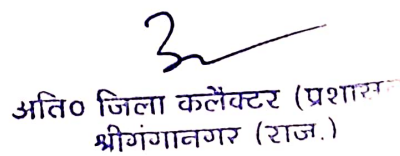 अति० जिला कलैक्टर (प्रशास
श्रीगंगानगर (राज.)